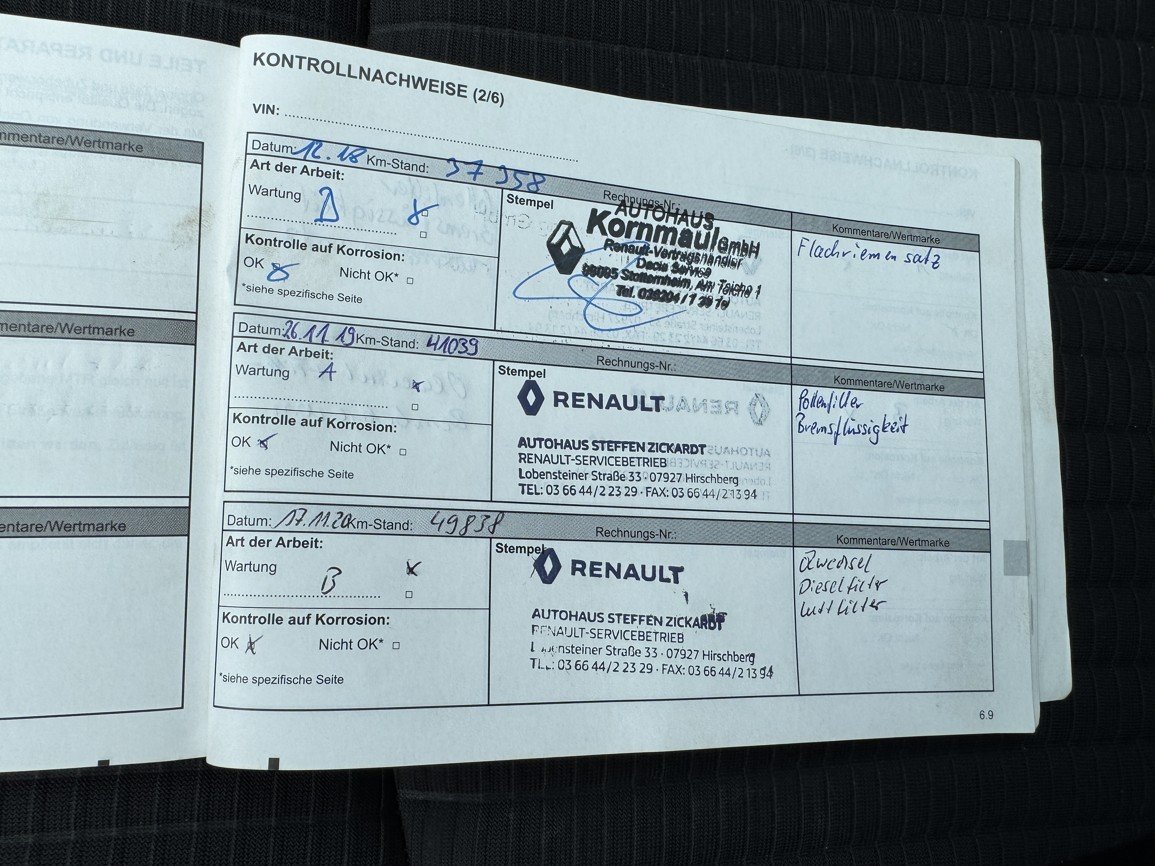 TEILE UND REPARA
mmentare/Wertmarke
mmentare/Wertmarke
entare/Wertmarke
KONTROLLNACHWEISE (2/6)
VIN:
Datum: 12.18 Km-Stand: 37 358
Rechnungs-Nr.:
Art der Arbeit:
Wartung D
Stempel
AUTOHAUS
Kornmaul GmbH
Renault-Vertragshändler
Dacia Service
Stotternheim, Am Teiche 1
Kommentare/Wertmarke
Flachriemensatz
Kontrolle auf Korrosion:
OK Nicht OK*
*siehe spezifische Seite
Datum: 26.11.19 Km-Stand: 41039
Rechnungs-Nr.:
Art der Arbeit:
Wartung A
Stempel
RENAULT
AUTOHAUS STEFFEN ZICKARDT
RENAULT-SERVICEBETRIEB
Lobensteiner Straße 33 · 07927 Hirschberg
TEL: 03 66 44/2 23 29 · FAX: 03 66 44/2 13 94
Kommentare/Wertmarke
Pollenfilter
Bremsflüssigkeit
Kontrolle auf Korrosion:
OK Nicht OK*
*siehe spezifische Seite
Datum: 17.11.20 Km-Stand: 49838
Rechnungs-Nr.:
Art der Arbeit:
Wartung B
Stempel
RENAULT
AUTOHAUS STEFFEN ZICKARDT
RENAULT-SERVICEBETRIEB
Lobensteiner Straße 33 · 07927 Hirschberg
TEL: 03 66 44/2 23 29 · FAX: 03 66 44/2 13 94
Kommentare/Wertmarke
Ölwechsel
Dieselfilter
Luftfilter
Kontrolle auf Korrosion:
OK Nicht OK*
*siehe spezifische Seite
6.9